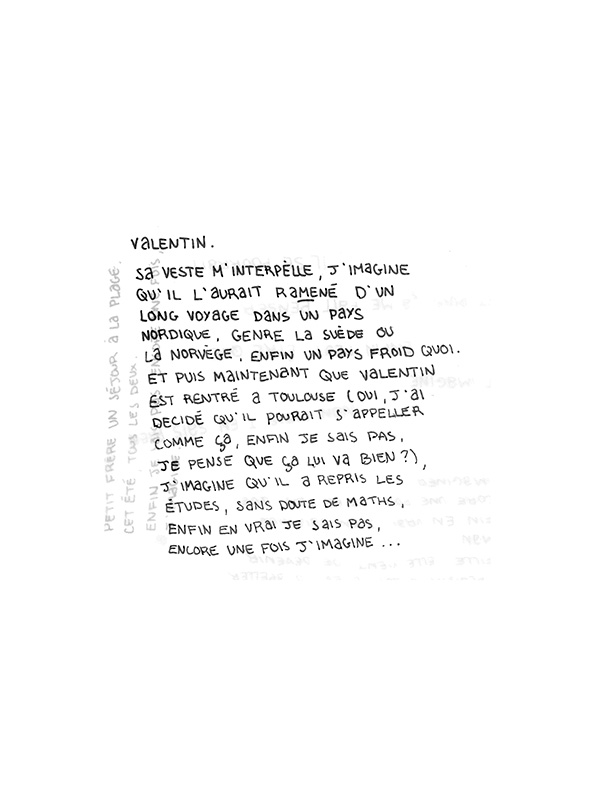 VALENTIN.
SA VESTE M'INTERPELLE, J'IMAGINE
QU'IL L'AURAIT RAMENÉ D'UN
LONG VOYAGE DANS UN PAYS
NORDIQUE, GENRE LA SUÈDE OU
LA NORVÈGE, ENFIN UN PAYS FROID QUOI.
ET PUIS MAINTENANT QUE VALENTIN
EST RENTRÉ A TOULOUSE (OUI, J'AI
DECIDÉ QU'IL POURAIT S'APPELLER
COMME ÇA, ENFIN JE SAIS PAS,
JE PENSE QUE ÇA LUI VA BIEN?),
J'IMAGINE QU'IL A REPRIS LES
ÉTUDES, SANS DOUTE DE MATHS,
ENFIN EN VRAI JE SAIS PAS,
ENCORE UNE FOIS J'IMAGINE...
PETIT FRÈRE UN SÉJOUR À LA PLAGE,
CET ÉTÉ, TOUS LES DEUX.
ENFIN JE SAIS PAS, ENCORE UNE FOIS,